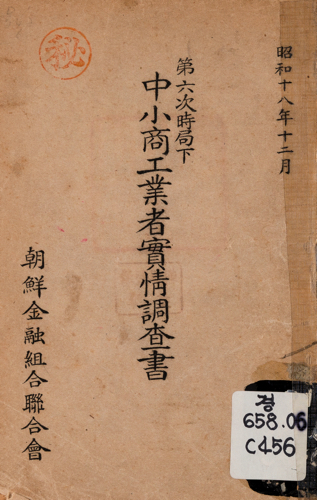 昭和十八年十二月
第六次時局下
中小商工業者實情調查書
朝鮮金融組合聯合會
秘
경
658.06
C456